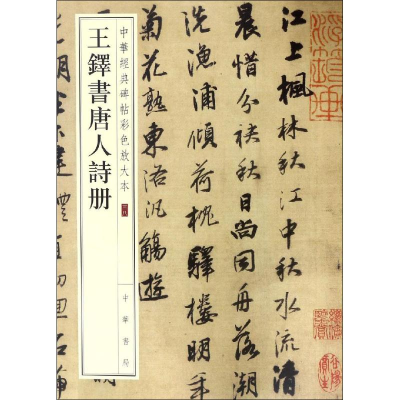 江上楓林秋江中秋水流清
晨惜分袂秋日尚同舟落潮
洗漁浦傾荷枕驛樓明年
菊花熟東洛汎觴遊
中華經典碑帖彩色放大本
王鐸書唐人詩册
中華書局